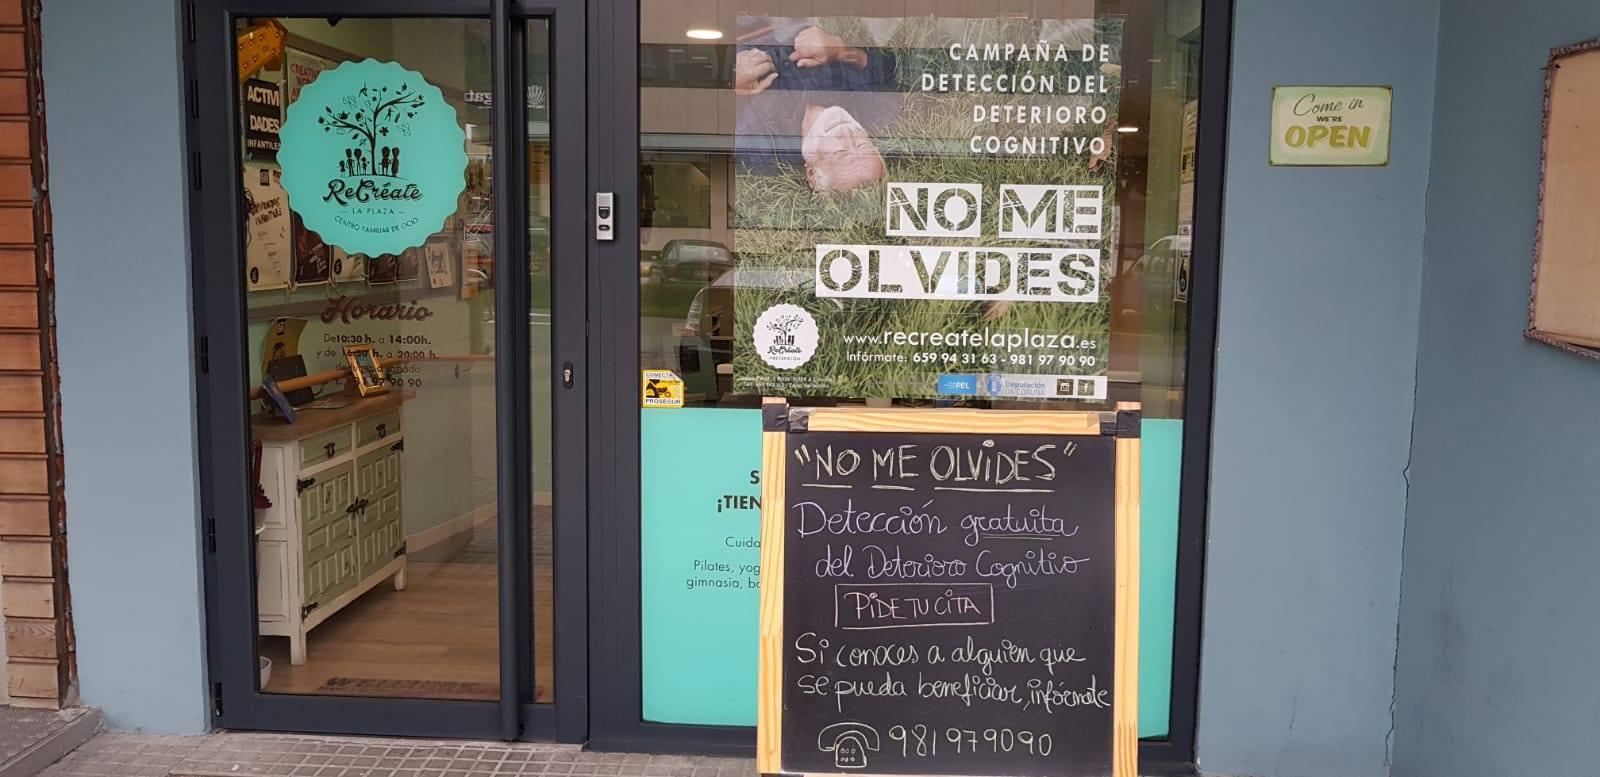 ACTIVI
DADES
INFANTILES
ReCréate
LA PLAZA
CENTRO FAMILIAR DE OCIO
Horario
De10:30 h. a 14:00h.
y de 16:30 h. a 20:00 h.
CAMPAÑA DE
DETECCIÓN DEL
DETERIORO
COGNITIVO
NO ME
OLVIDES
ReCréate
PREVENCIÓN
www.recreatelaplaza.es
Infórmate: 659 94 31 63 - 981 97 90 90
PEL
Deputación
DA CORUÑA
CONECTA
PROSEGUR
Come in
WE'RE
OPEN
S
¡TIEN
Cuida
Pilates, yog
gimnasia, ba
"NO ME OLVIDES"
Detección gratuita
del Deterioro Cognitivo
PIDE TU CITA
Si conoces a alguien que
se pueda beneficiar, infórmate
981979090